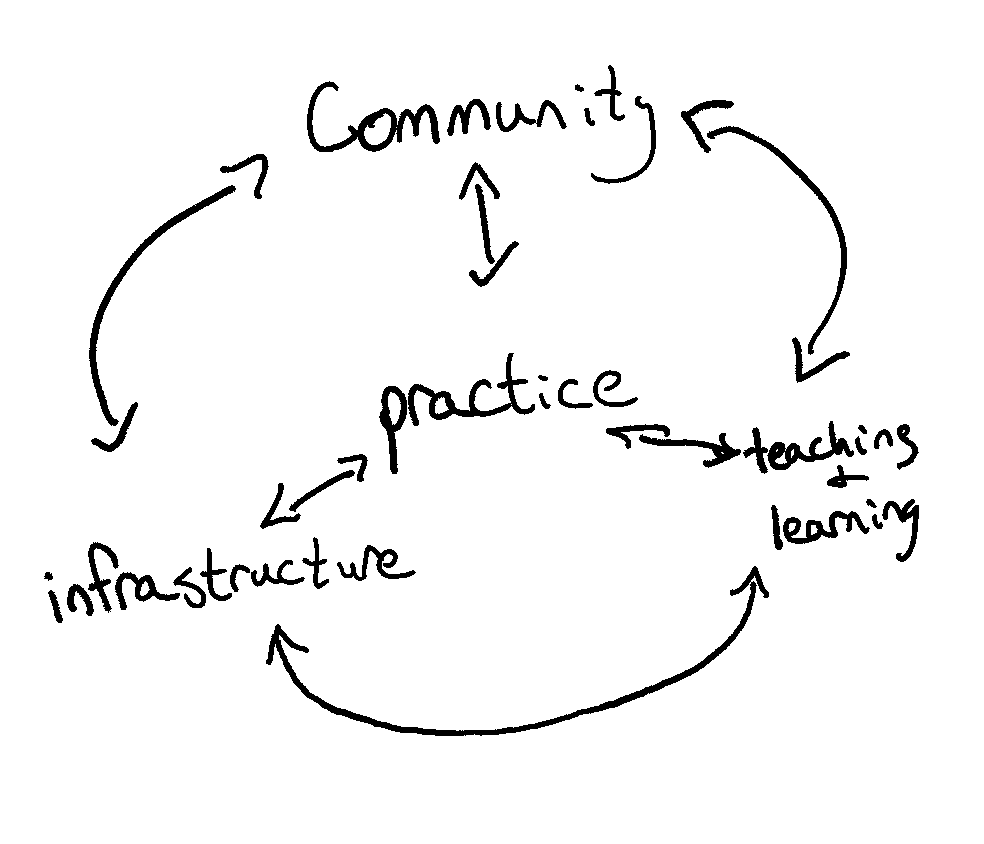 Community
practice
teaching
+
learning
infrastructure